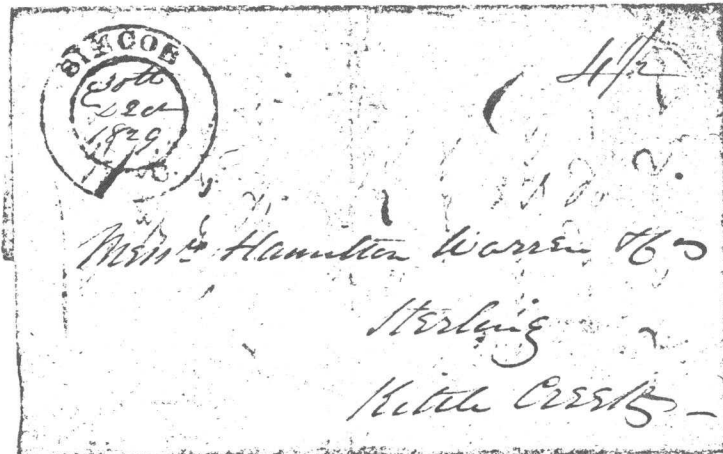 SIMCOE
30th
Dec
1829
4½
Messrs Hamilton Warren & Co
Sterling
Kettle Creek